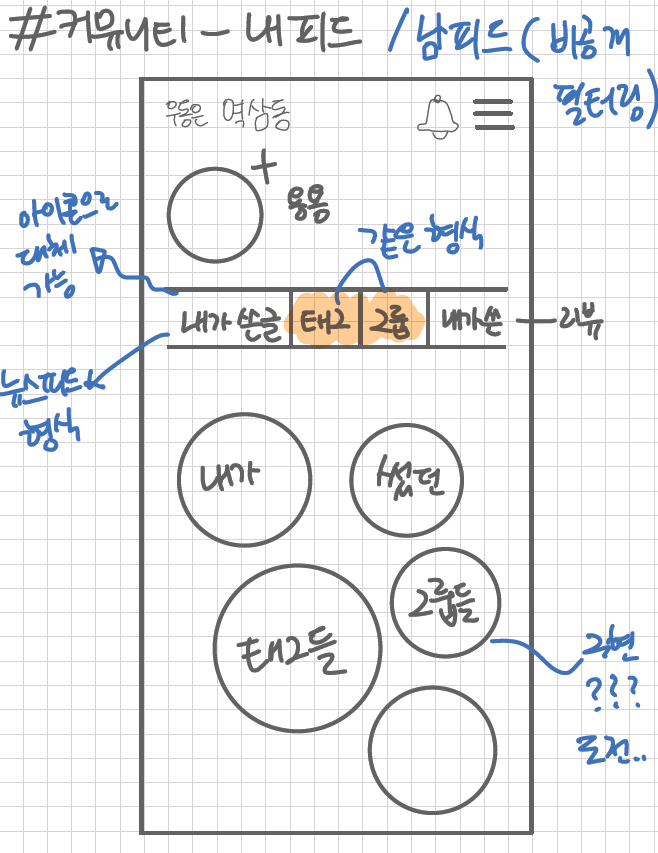 #커뮤니티 - 내피드 / 남피드 (비공개 필터링)
우동은 역삼동
+
용용
아이콘으로
대체
가능
같은 형식
내가 쓴글
태그
그룹
내가쓴 — 리뷰
뉴스피드
형식
내가
썼던
그룹들
태그들
구현
???
도전..